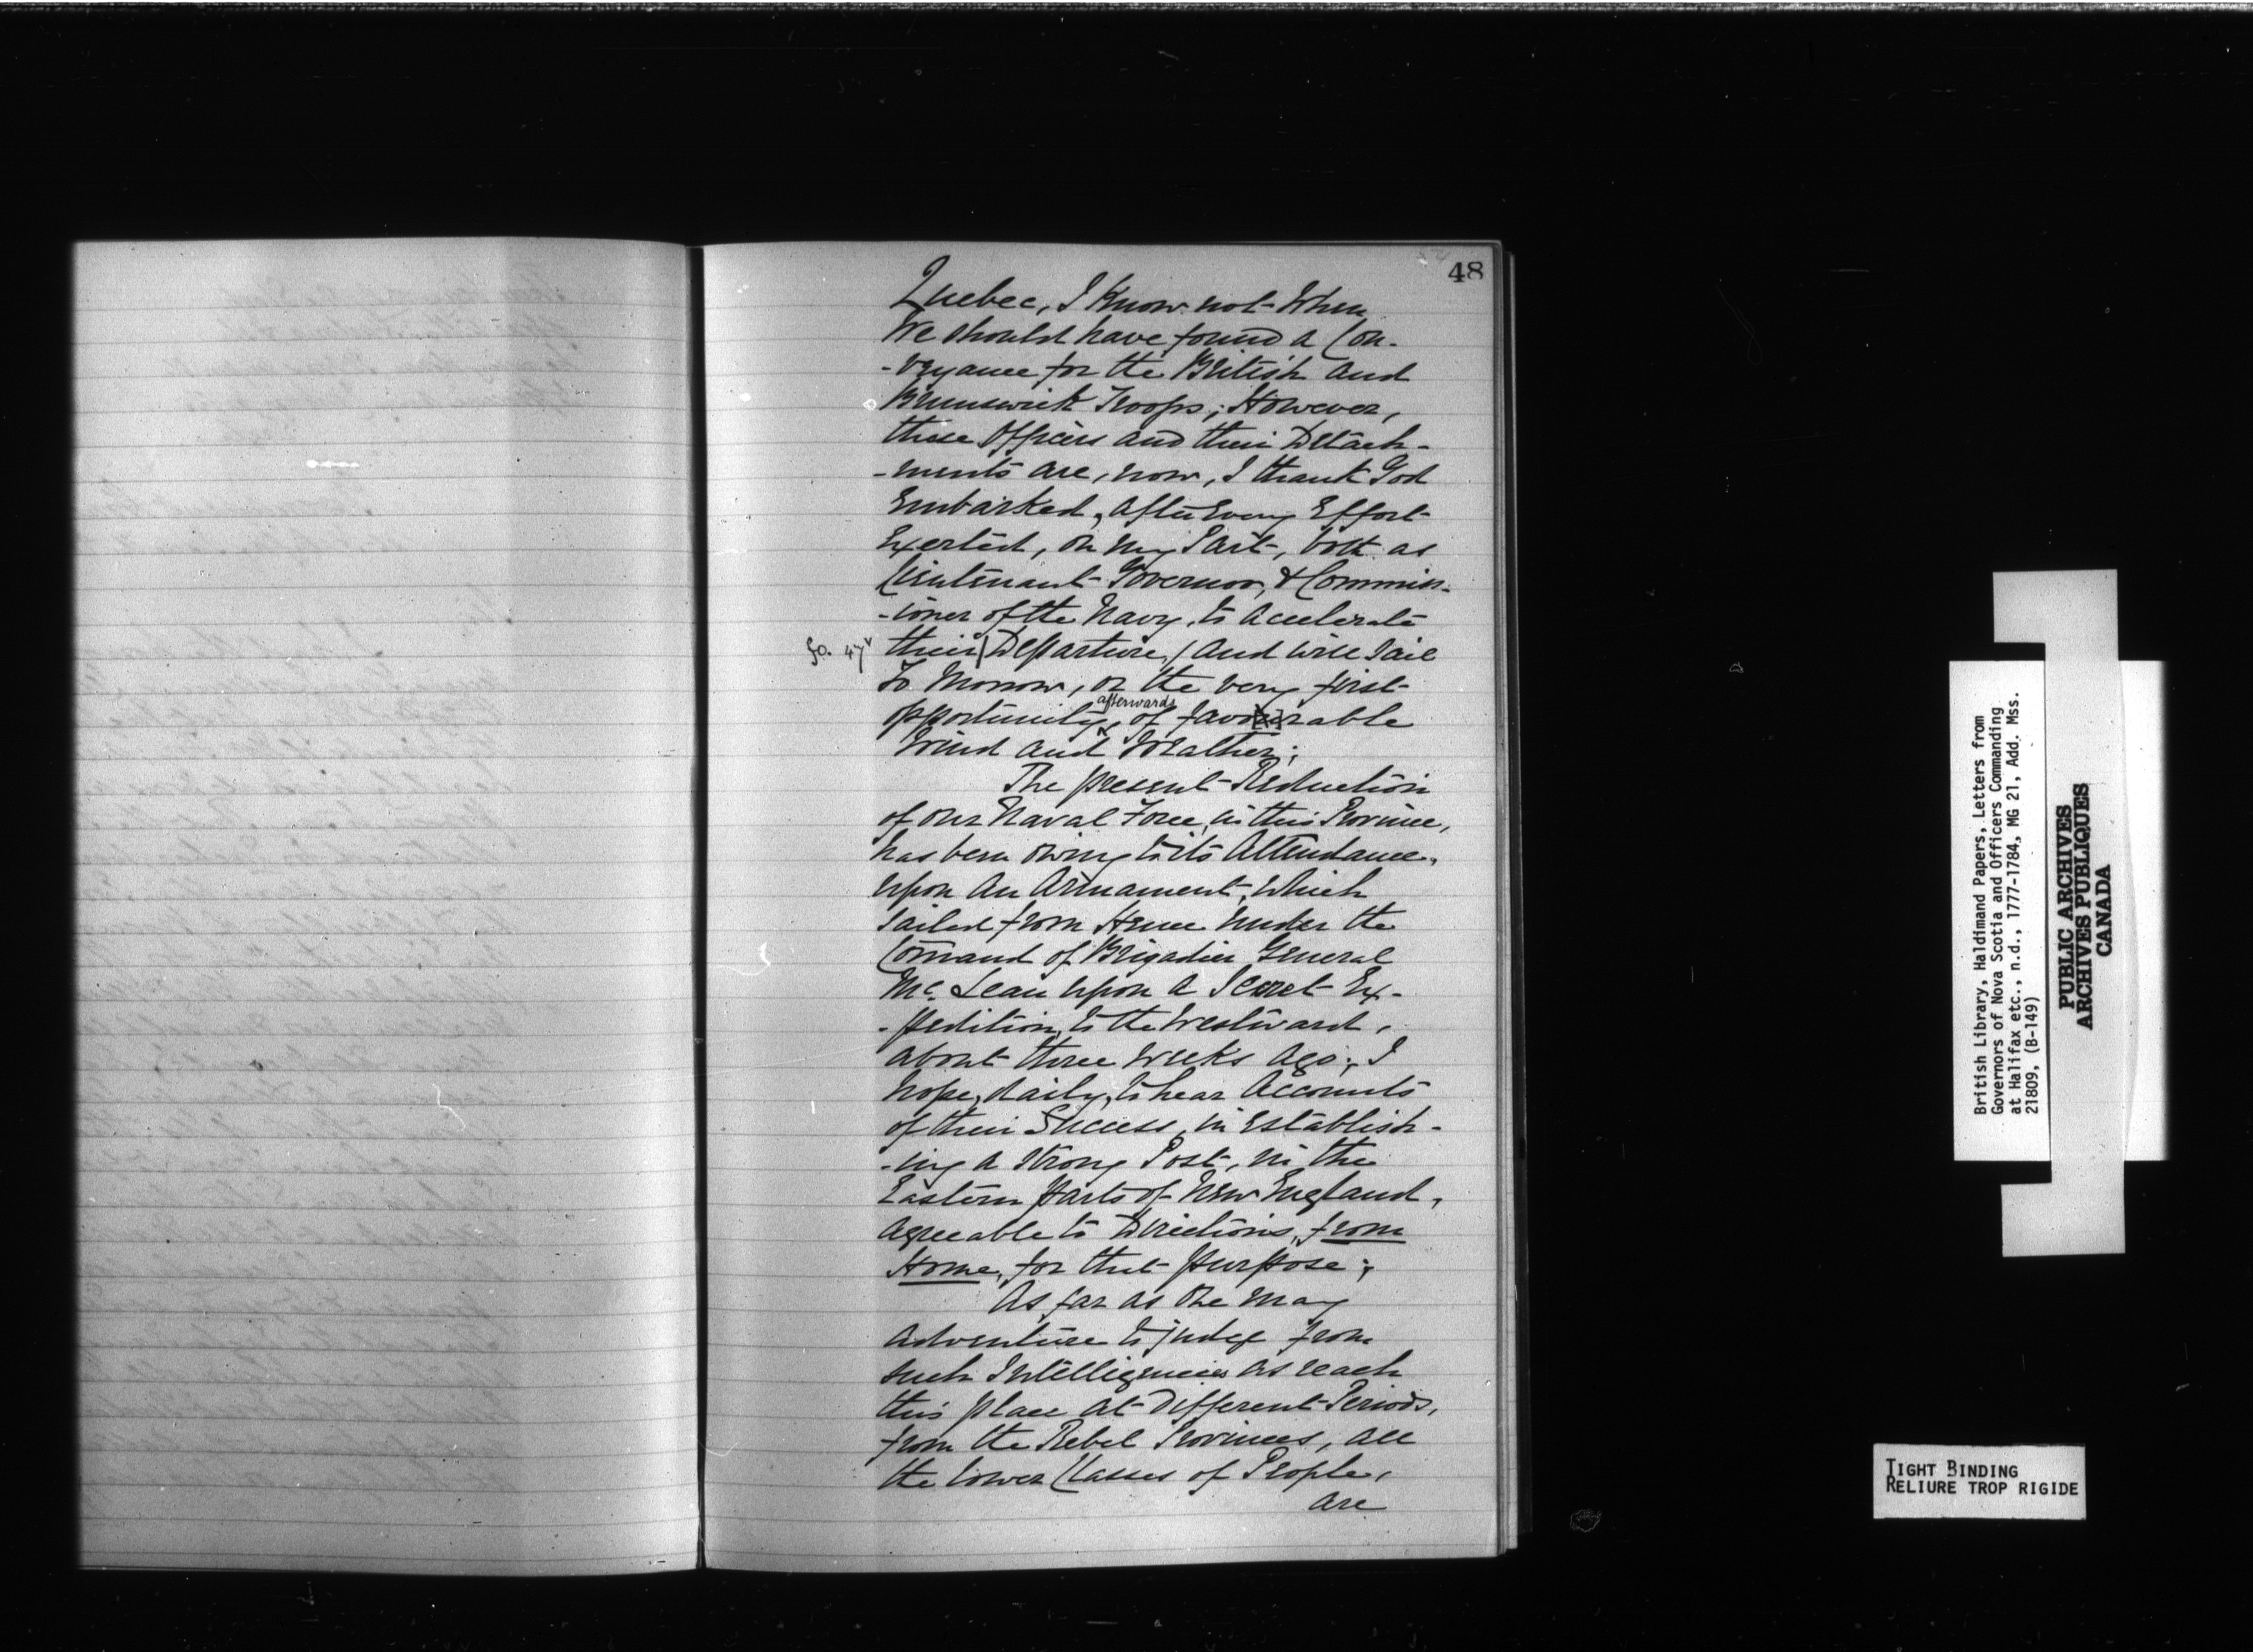 48
Quebec, I Know not When
We should have found a Con-
-veyance for the British and
Brunswick Troops; However,
these Officers and their Detach-
-ments are, now, I thank God
Embarked, after Every Effort
Exerted, on my Part, both as
Lieutenant Governor, & Commiss-
-ioner of the Navy, to accelerate
fo. 47v their / Departure, / and will sail
To Morrow, or the very first
afterwards
opportunity, of favourable
Wind and Weather;
The present Reduction
of our Naval Force, in this Province,
has been owing to its Attendance,
upon an Armament, which
sailed from Hence under the
Comand of Brigadier General
Mc. Lean upon a Secret Ex-
-pedition, to the Westward,
about three weeks ago; I
hope, daily, to hear Accounts
of their Success, in Establish-
-ing a strong Post, in the
Eastern parts of New England,
agreeable to Directions, from
Home, for that purpose;
As far as One may
adventure to judge from
such Intelligencies as reach
this place at Different Periods,
from the Rebel Provinces, all
the lower Classes of People,
are
British Library, Haldimand Papers, Letters from
Governors of Nova Scotia and Officers Commanding
at Halifax etc., n.d., 1777-1784, MG 21, Add. Mss.
21809, (B-149)
PUBLIC ARCHIVES
ARCHIVES PUBLIQUES
CANADA
TIGHT BINDING
RELIURE TROP RIGIDE